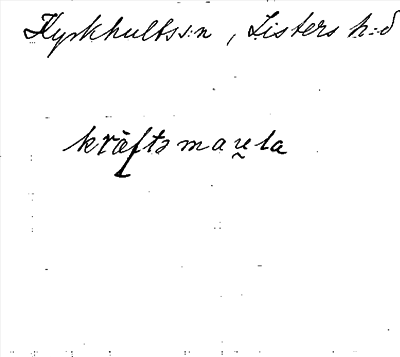 Kyrkhults sn, Listers h:d
kräftəmau̯la